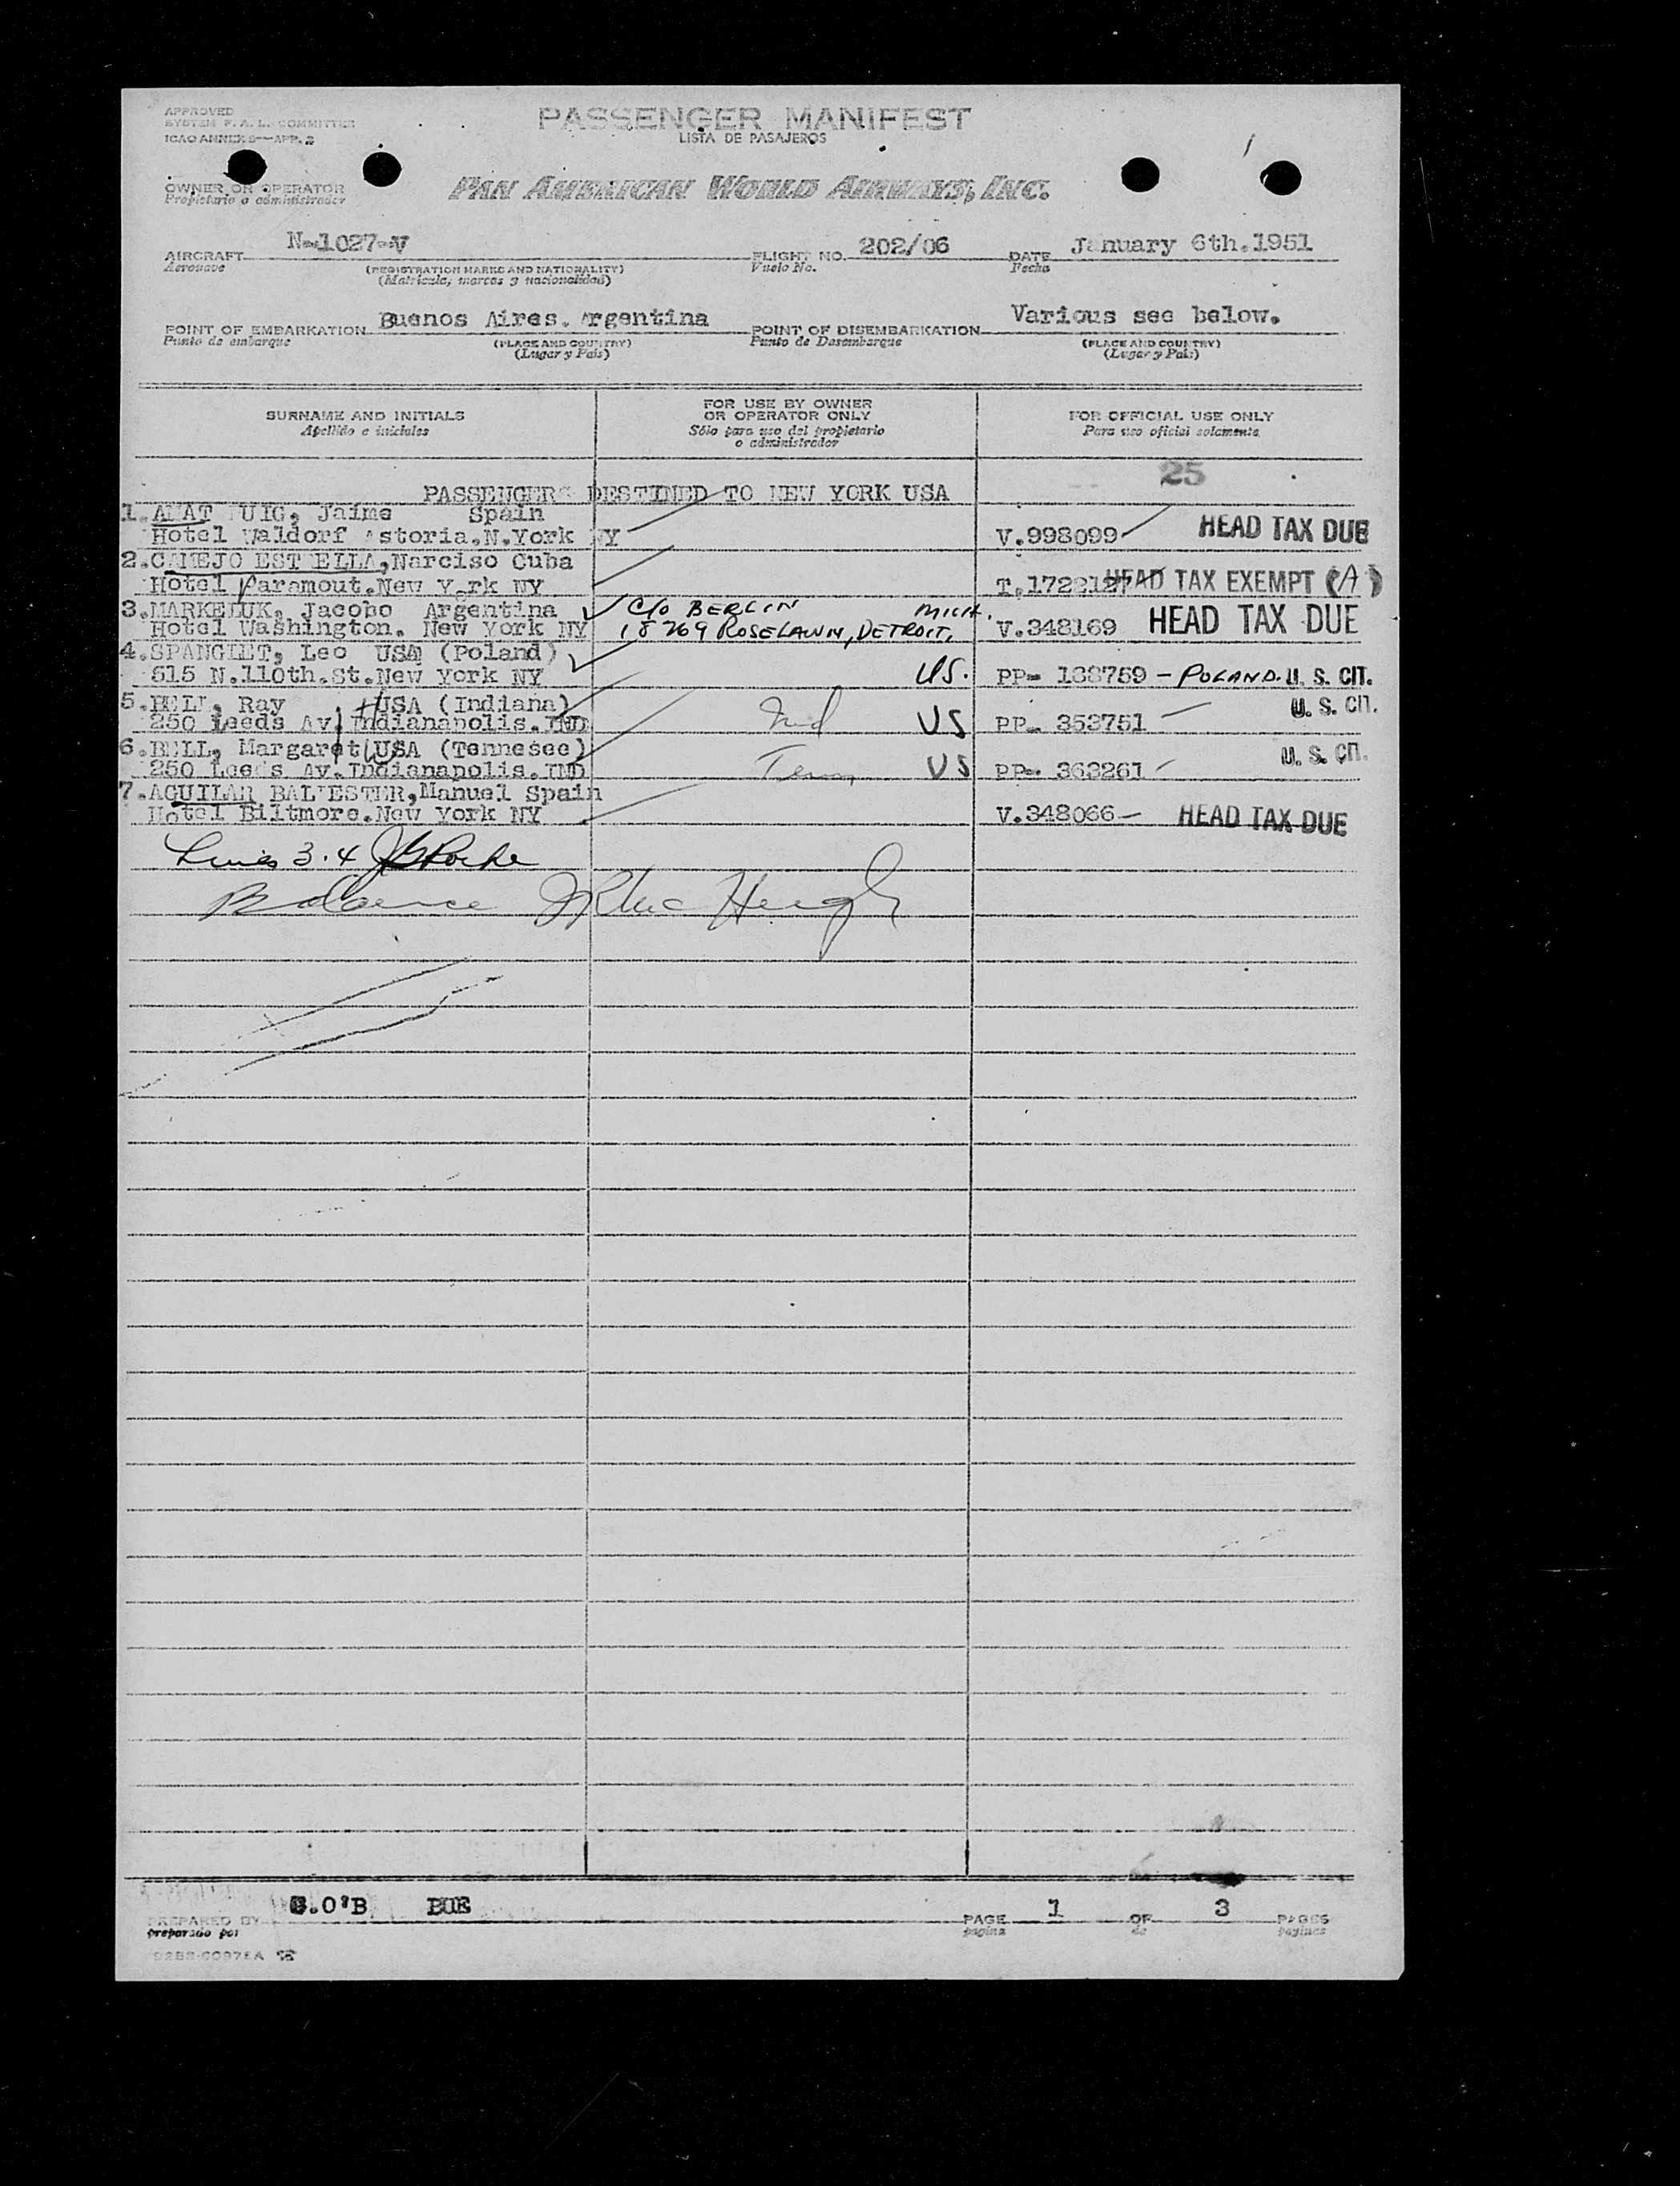 APPROVED
SYSTEM F. A. L. COMMITTEE
ICAO ANNEX 9—APP. 2
PASSENGER MANIFEST
LISTA DE PASAJEROS
OWNER OR OPERATOR
Propietario o administrador
PAN AMERICAN WORLD AIRWAYS, INC.
AIRCRAFT N-1027-V FLIGHT NO. 202/06 DATE January 6th.1951
Aeronave (REGISTRATION MARKS AND NATIONALITY) Vuelo No. Fecha
(Matrícula, marcas y nacionalidad)
POINT OF EMBARKATION Buenos Aires. Argentina POINT OF DISEMBARKATION Various see below.
Punto de embarque (PLACE AND COUNTRY) Punto de Desembarque (PLACE AND COUNTRY)
(Lugar y País) (Lugar y País)
SURNAME AND INITIALS FOR USE BY OWNER OR OPERATOR ONLY FOR OFFICIAL USE ONLY
Apellido e iniciales Sólo para uso del propietario o administrador Para uso oficial solamente
25
PASSENGERS DESTINED TO NEW YORK USA
1. AMAT PUIG, Jaime Spain
Hotel Waldorf Astoria.N.York NY V.998099 HEAD TAX DUE
2.CAMEJO ESTRELLA,Narciso Cuba
Hotel Paramout.New York NY T.1722127 HEAD TAX EXEMPT (A)
3.MARKETUK, Jacobo Argentina C/O BERLIN MICH.
Hotel Washington. New York NY 18269 ROSELAWN, DETROIT, V.348169 HEAD TAX DUE
4.SPANGLET, Leo USA (Poland)
515 N.110th.St.New York NY US. PP- 188759 - POLAND. U. S. CIT.
5.BELL, Ray USA (Indiana) U. S. CIT.
250 Leeds Av. Indianapolis.IND Ind US PP- 353751
6.BELL, Margaret USA (Tennesee) U. S. CIT.
250 Leeds Av.Indianapolis.IND Tenn US PP- 363261
7.AGUILAR BALLESTER,Manuel Spain
Hotel Biltmore.New York NY V.348066 HEAD TAX DUE
Lines 3.4
Balance
PREPARED BY G.O'B BUE PAGE 1 OF 3 PAGES
preparado por pagina de paginas